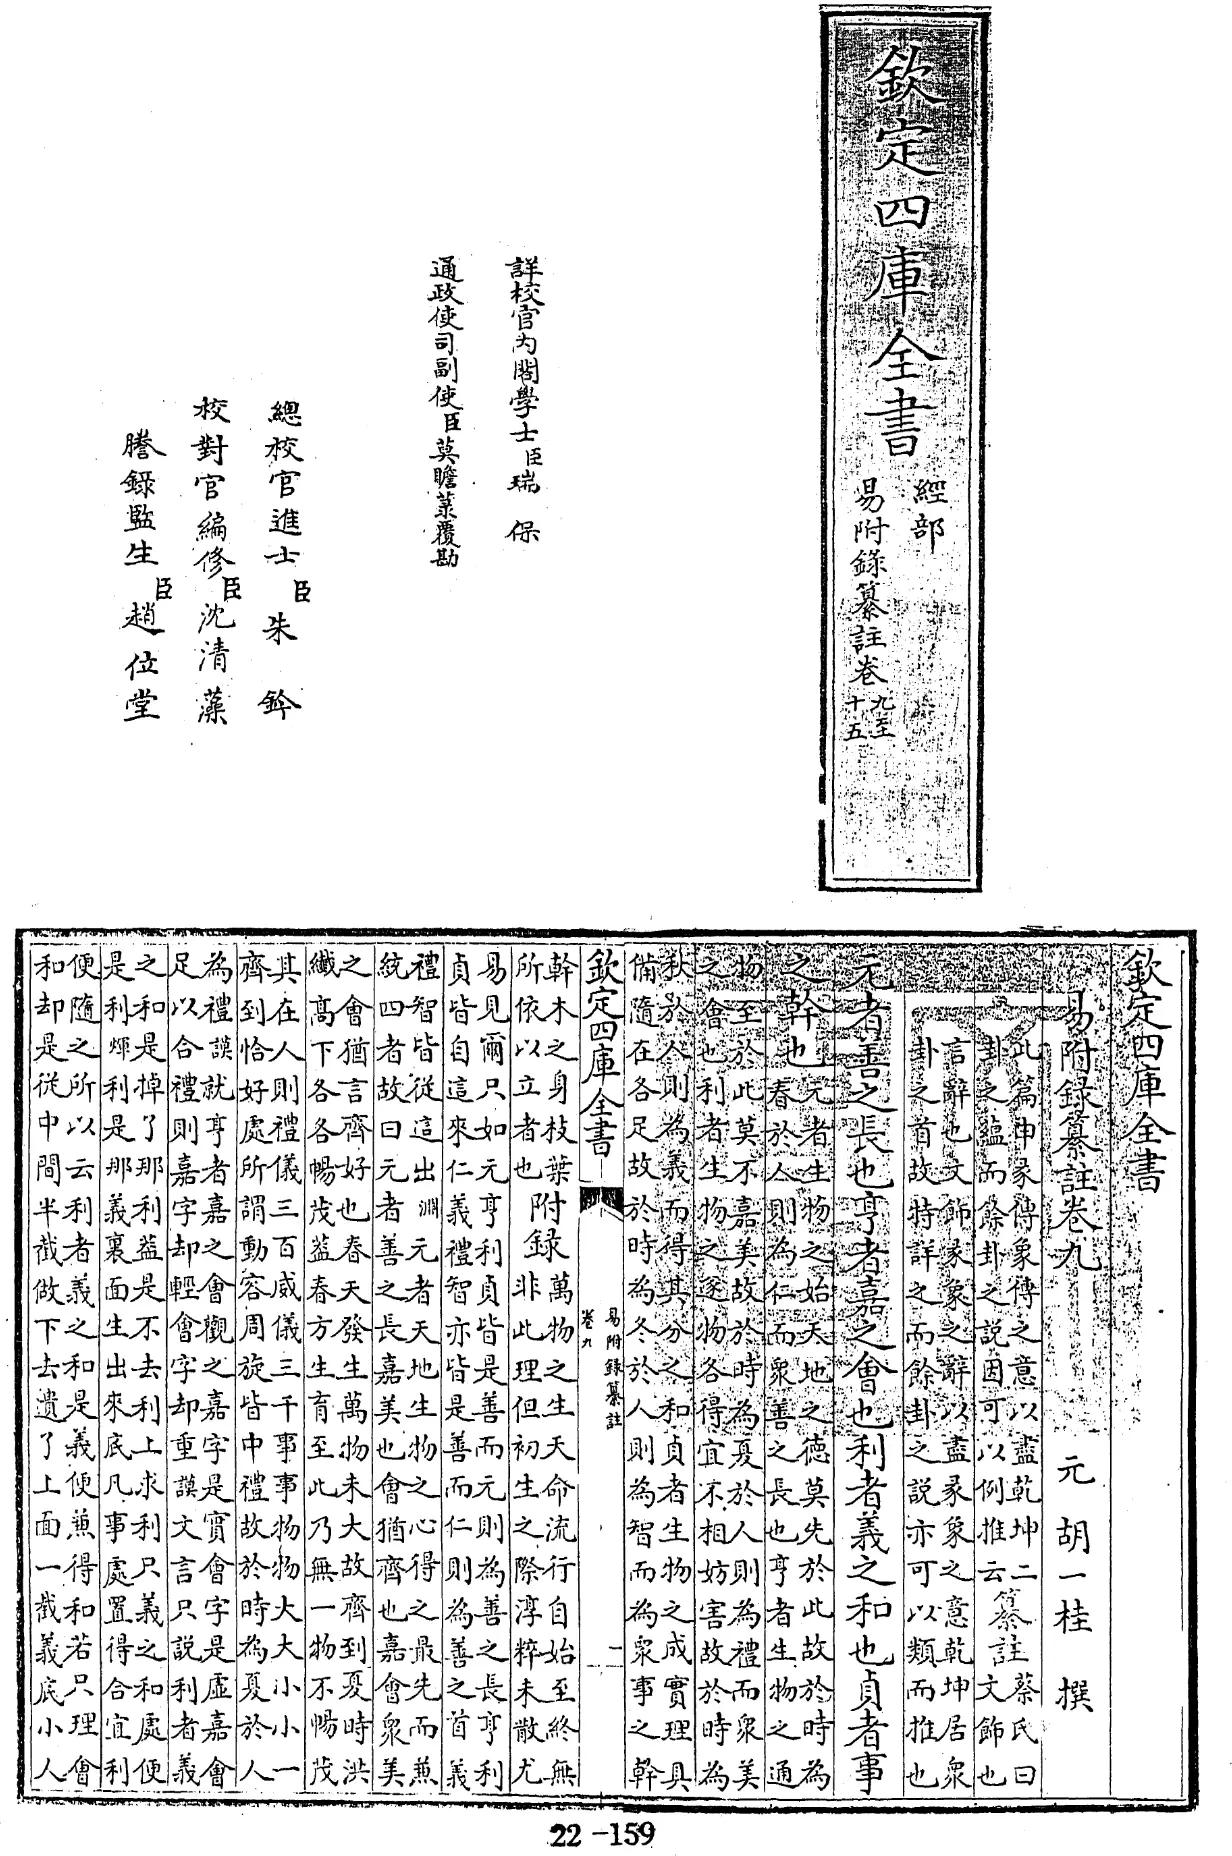 欽定四庫全書
經部
易附錄纂註卷九至
十五
詳校官內閣學士臣瑞保
通政使司副使臣莫瞻菉覆勘
總校官進士臣朱鈐
校對官編修臣沈清藻
謄錄監生臣趙位堂
欽定四庫全書
易附録纂註卷九
元 胡一桂 撰
此篇申彖傳象傳之意以盡乾坤二
卦之蘊而餘卦之説因可以例推云
纂註 蔡氏曰
文飾也
言辭也文飾彖象之辭以盡彖象之意乾坤居衆
卦之首故特詳之而餘卦之説亦可以類而推也
元者善之長也亨者嘉之會也利者義之和也貞者事
之幹也
元者生物之始天地之德莫先於此故於時為
春於人則為仁而衆善之長也亨者生物之通
物至於此莫不嘉美故於時為夏於人則為禮而衆美
之會也利者生物之遂物各得宜不相妨害故於時為
秋於人則為義而得其分之和貞者生物之成實理具
備隨在各足故於時為冬於人則為智而為衆事之幹
欽定四庫全書
易附録纂註
卷九
一
幹木之身枝葉
所依以立者也
附録
萬物之生天命流行自始至終無
非此理但初生之際淳粹未散尤
易見爾只如元亨利貞皆是善而元則為善之長亨利
貞皆自這來仁義禮智亦皆是善而仁則為善之首義
禮智皆從這出淵 元者天地生物之心得之最先而兼
統四者故曰元者善之長嘉美也會猶齊也嘉會衆美
之會猶言齊好也春天發生萬物未大故齊到夏時洪
纖高下各各暢茂蓋春方生育至此乃無一物不暢茂
其在人則禮儀三百威儀三千事事物物大大小小一
齊到恰好處所謂動容周旋皆中禮故於時為夏於人
為禮謨就亨者嘉之會觀之嘉字是實會字是虛嘉會
足以合禮則嘉字却輕會字却重謨文言只説利者義
之和是掉了那利益是不去利上求利只義之和處便
是利煇利是那義裏面生出來底凡事處置得合宜利
便隨之所以云利者義之和是義便兼得和若只理會
和却是從中間半截做下去遺了上面一截義底小人
22-159